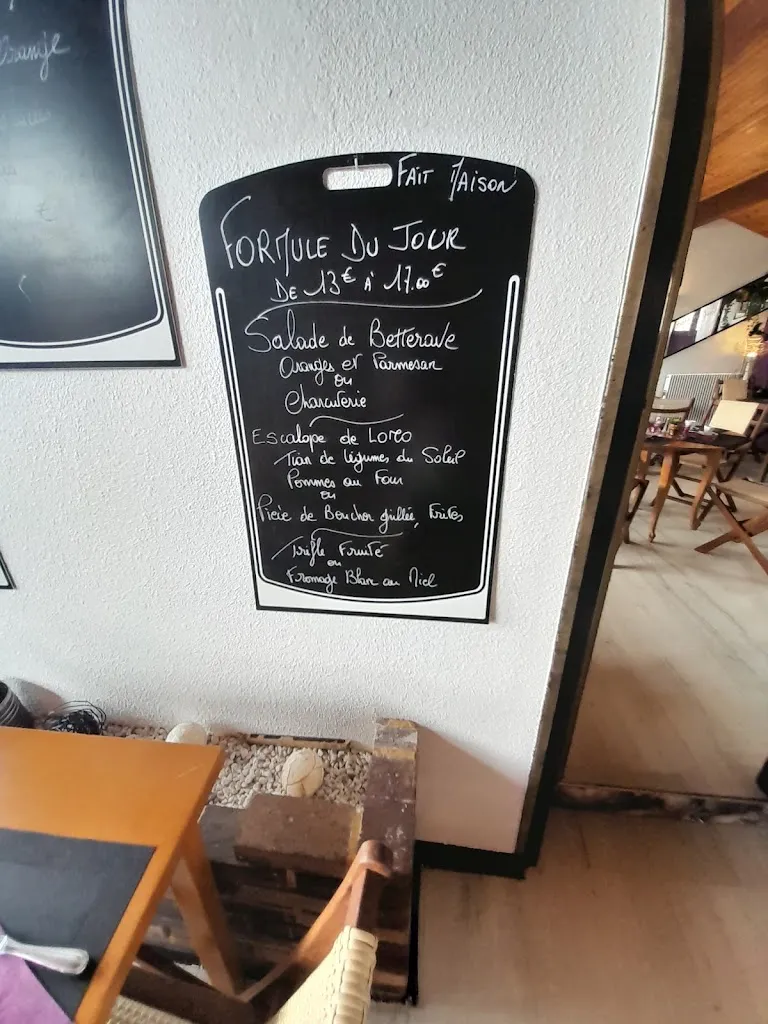 Orange
€
FAIT MAISON
FORMULE DU JOUR
DE 13€ À 17.00€
Salade de Betterave
Oranges et Parmesan
ou
Charcuterie
Escalope de LOMO
Tian de légumes du Soleil
Pommes au Four
ou
Pièce de Boucher grillée, Frites
Trifle Fruité
ou
Fromage Blanc au Miel